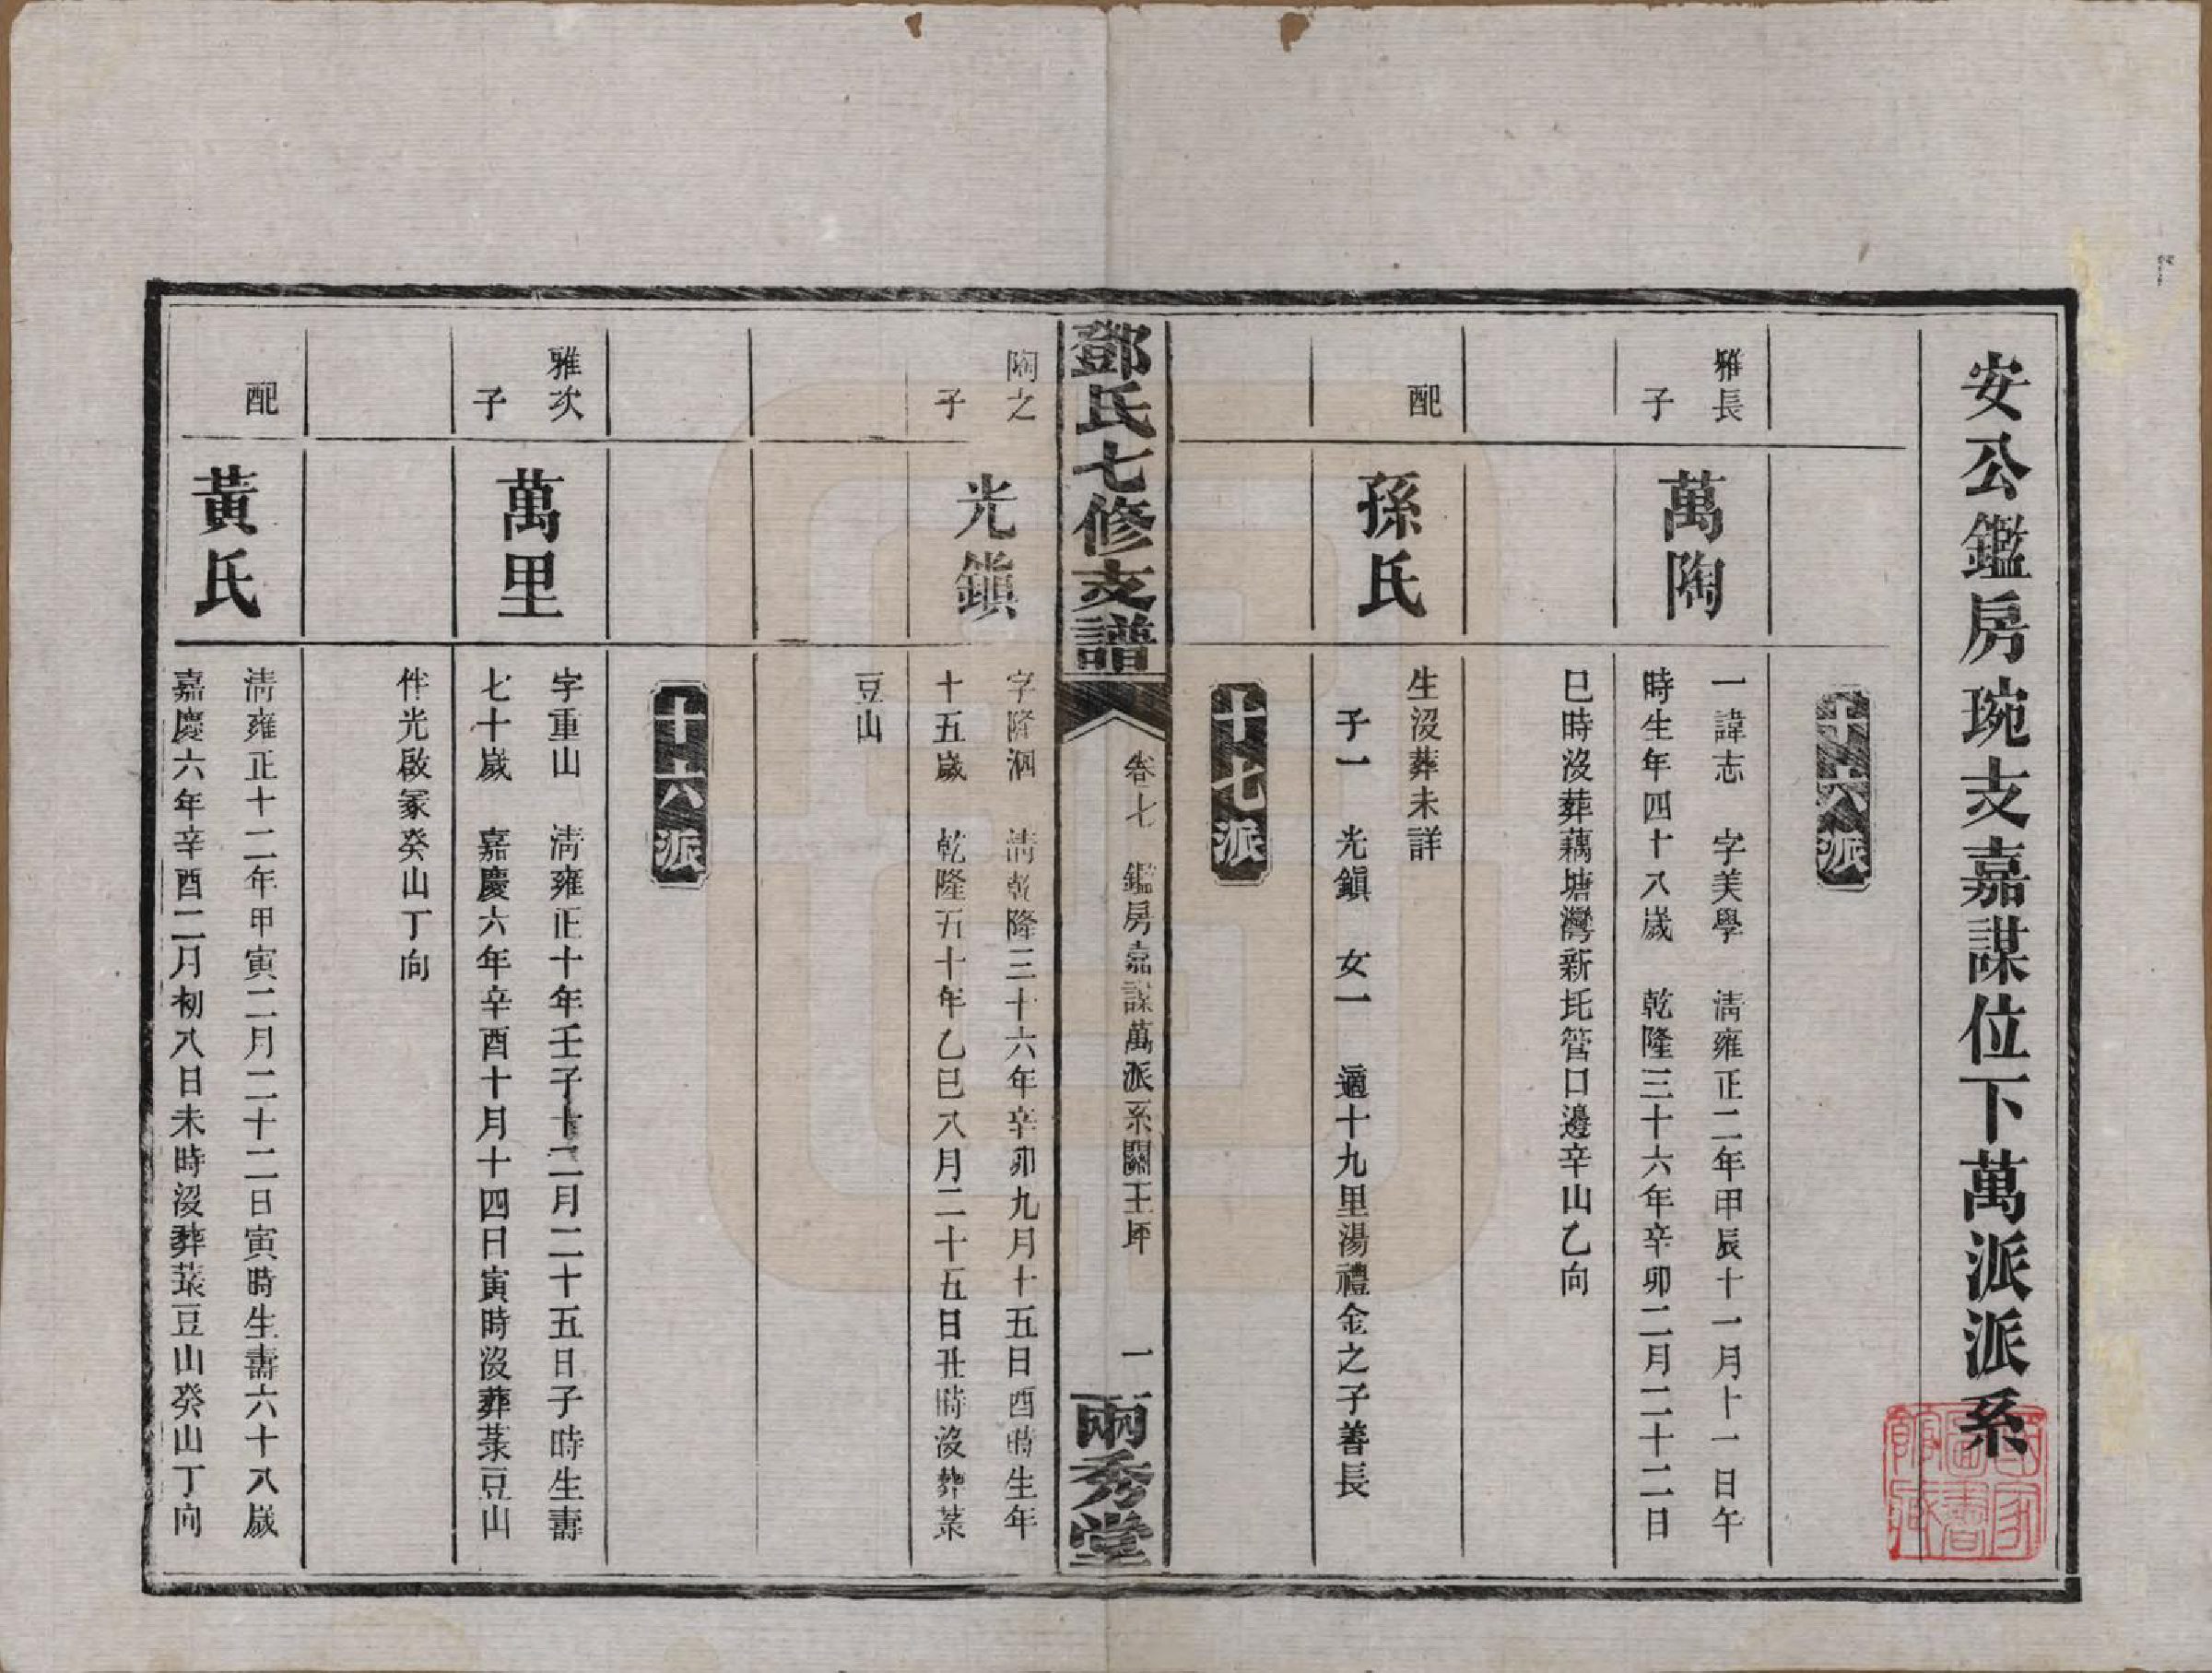 安公鑑房琬支嘉謀位下萬派派系
十六派
雅長
子
萬陶
一諱志　字美學　清雍正二年甲辰十一月十一日午
時生年四十八歲　乾隆三十六年辛卯二月二十二日
巳時沒葬藕塘灣新圫管口邊辛山乙向
配
孫氏
生沒葬未詳
子一　光鎮　女一　適十九里湯禮金之子善長
十七派
鄧氏七修支譜
卷七　鑑房嘉謀萬派系關王坪　一
兩秀堂
陶之
子
光鎮
字隆洄　清乾隆三十六年辛卯九月十五日酉時生年
十五歲　乾隆五十年乙巳八月二十五日丑時沒葬菉
豆山
十六派
雅次
子
萬里
字重山　清雍正十年壬子十二月二十五日子時生壽
七十歲　嘉慶六年辛酉十月十四日寅時沒葬菉豆山
伴光啟冢癸山丁向
配
黃氏
清雍正十二年甲寅二月二十二日寅時生壽六十八歲
嘉慶六年辛酉二月初八日未時沒葬菉豆山癸山丁向
國家
圖書
館藏